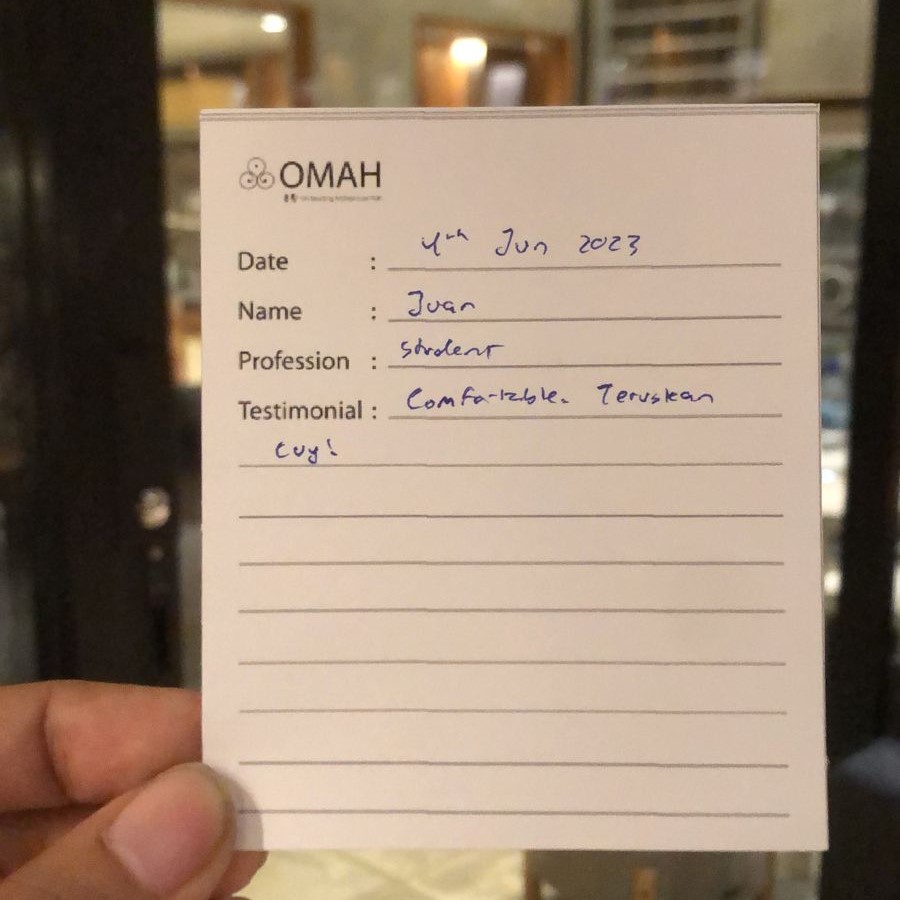 OMAH
Date : 4th Jun 2023
Name : Juan
Profession : Student
Testimonial : Comfortable. Teruskan
Cuy!